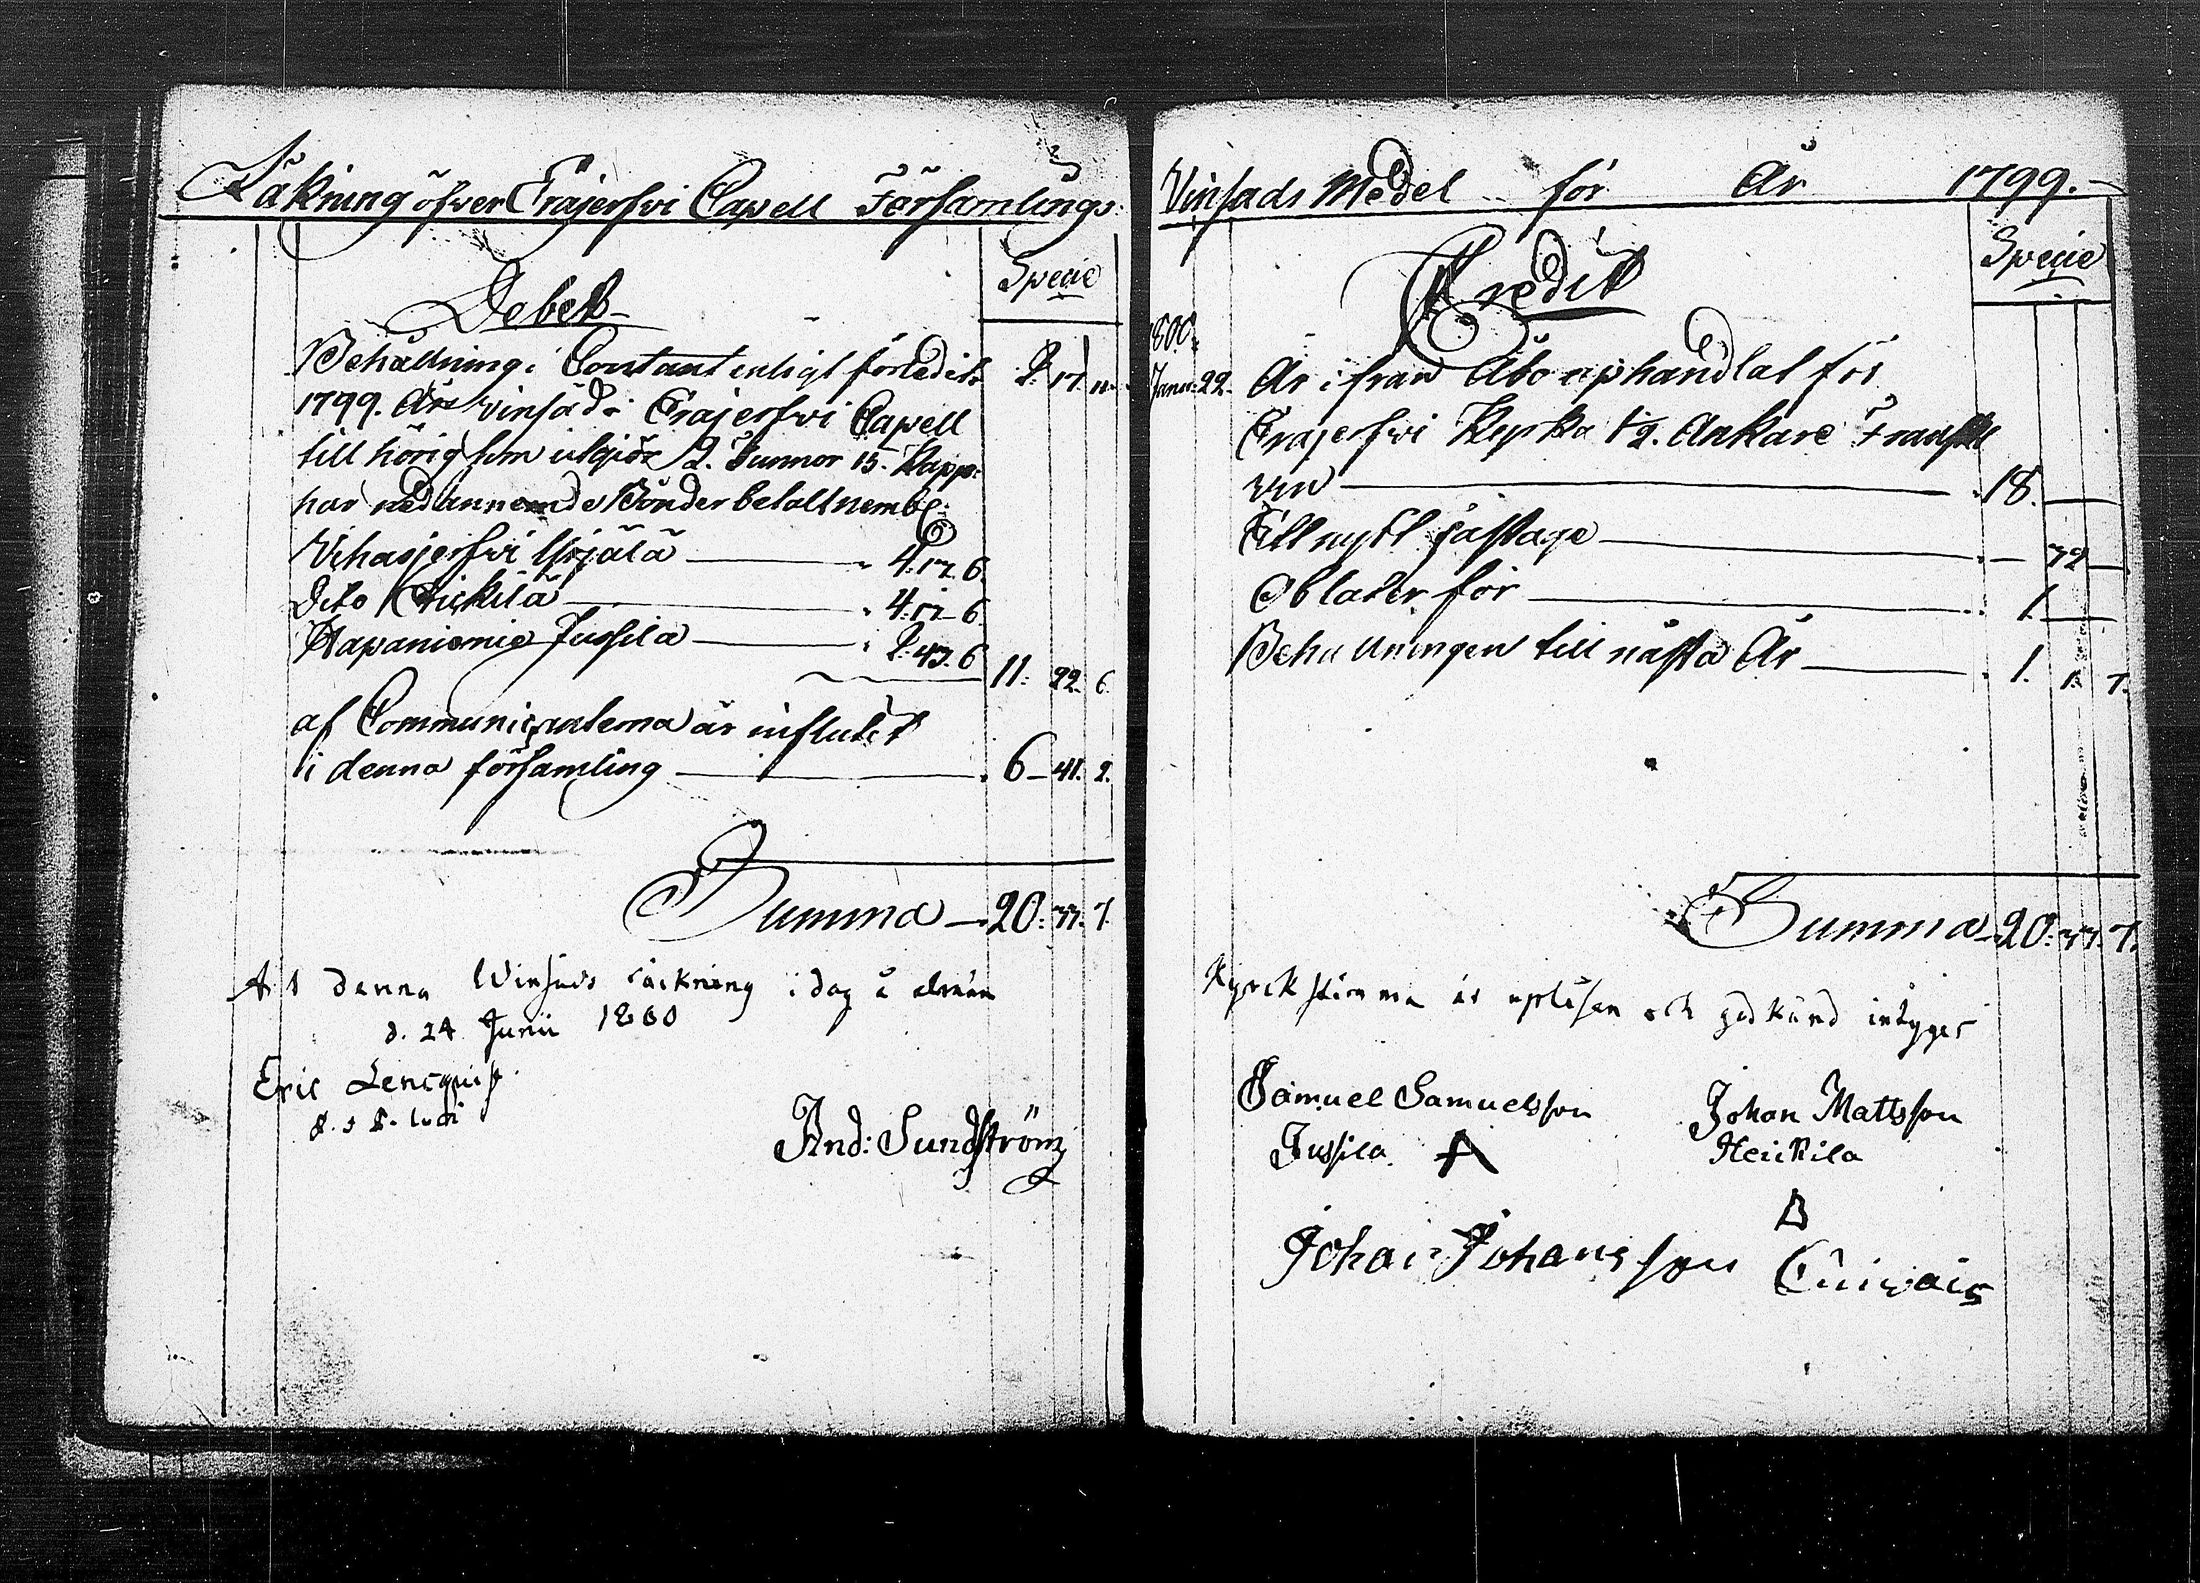 Räkning öfver Träjerfwi Capell Församlings
Specie
Debet
Behållning i Contant enligt förledit 2. 17. 11.
1799. Års vinsäd i Träjerfwi Capell
till hörig som utgiör 2. Tunnor 15. Kapp:
har nedannemde Bönder betalt nembl:
Vihasjerfwi Yrjälä 4. 17. 6.
Dito Erickilä 4. 17. 6.
Hapaniemie Jussila 2. 43. 6
11. 22. 6.
af Communicanterna är influtet
i denna församling 6. 41. 2.
Summa 20. 77. 7.
At denna Winsäds räckning i dag å almän
d. 24 Junii 1800
Eric Lencquist
P. & P. loci
And: Sundström
Vinsads Medel för År 1799.
Specie
Kredit
1800
Janu: 22. Är ifrån Åbo uphandlat för
Träjerfwi Kyrka 1/2. Ankare Franskt
vin 18.
Till nytt fastage 72
Oblater för 1.
Behållningen till nästa År 1. 5. 7.
Summa 20. 77. 7.
Kyrckstämma är upläsen och godkänd intygar
Samuel Samuelsson
Jussila A
Johan Mattsson
Heickilä
B
Johan Johansson